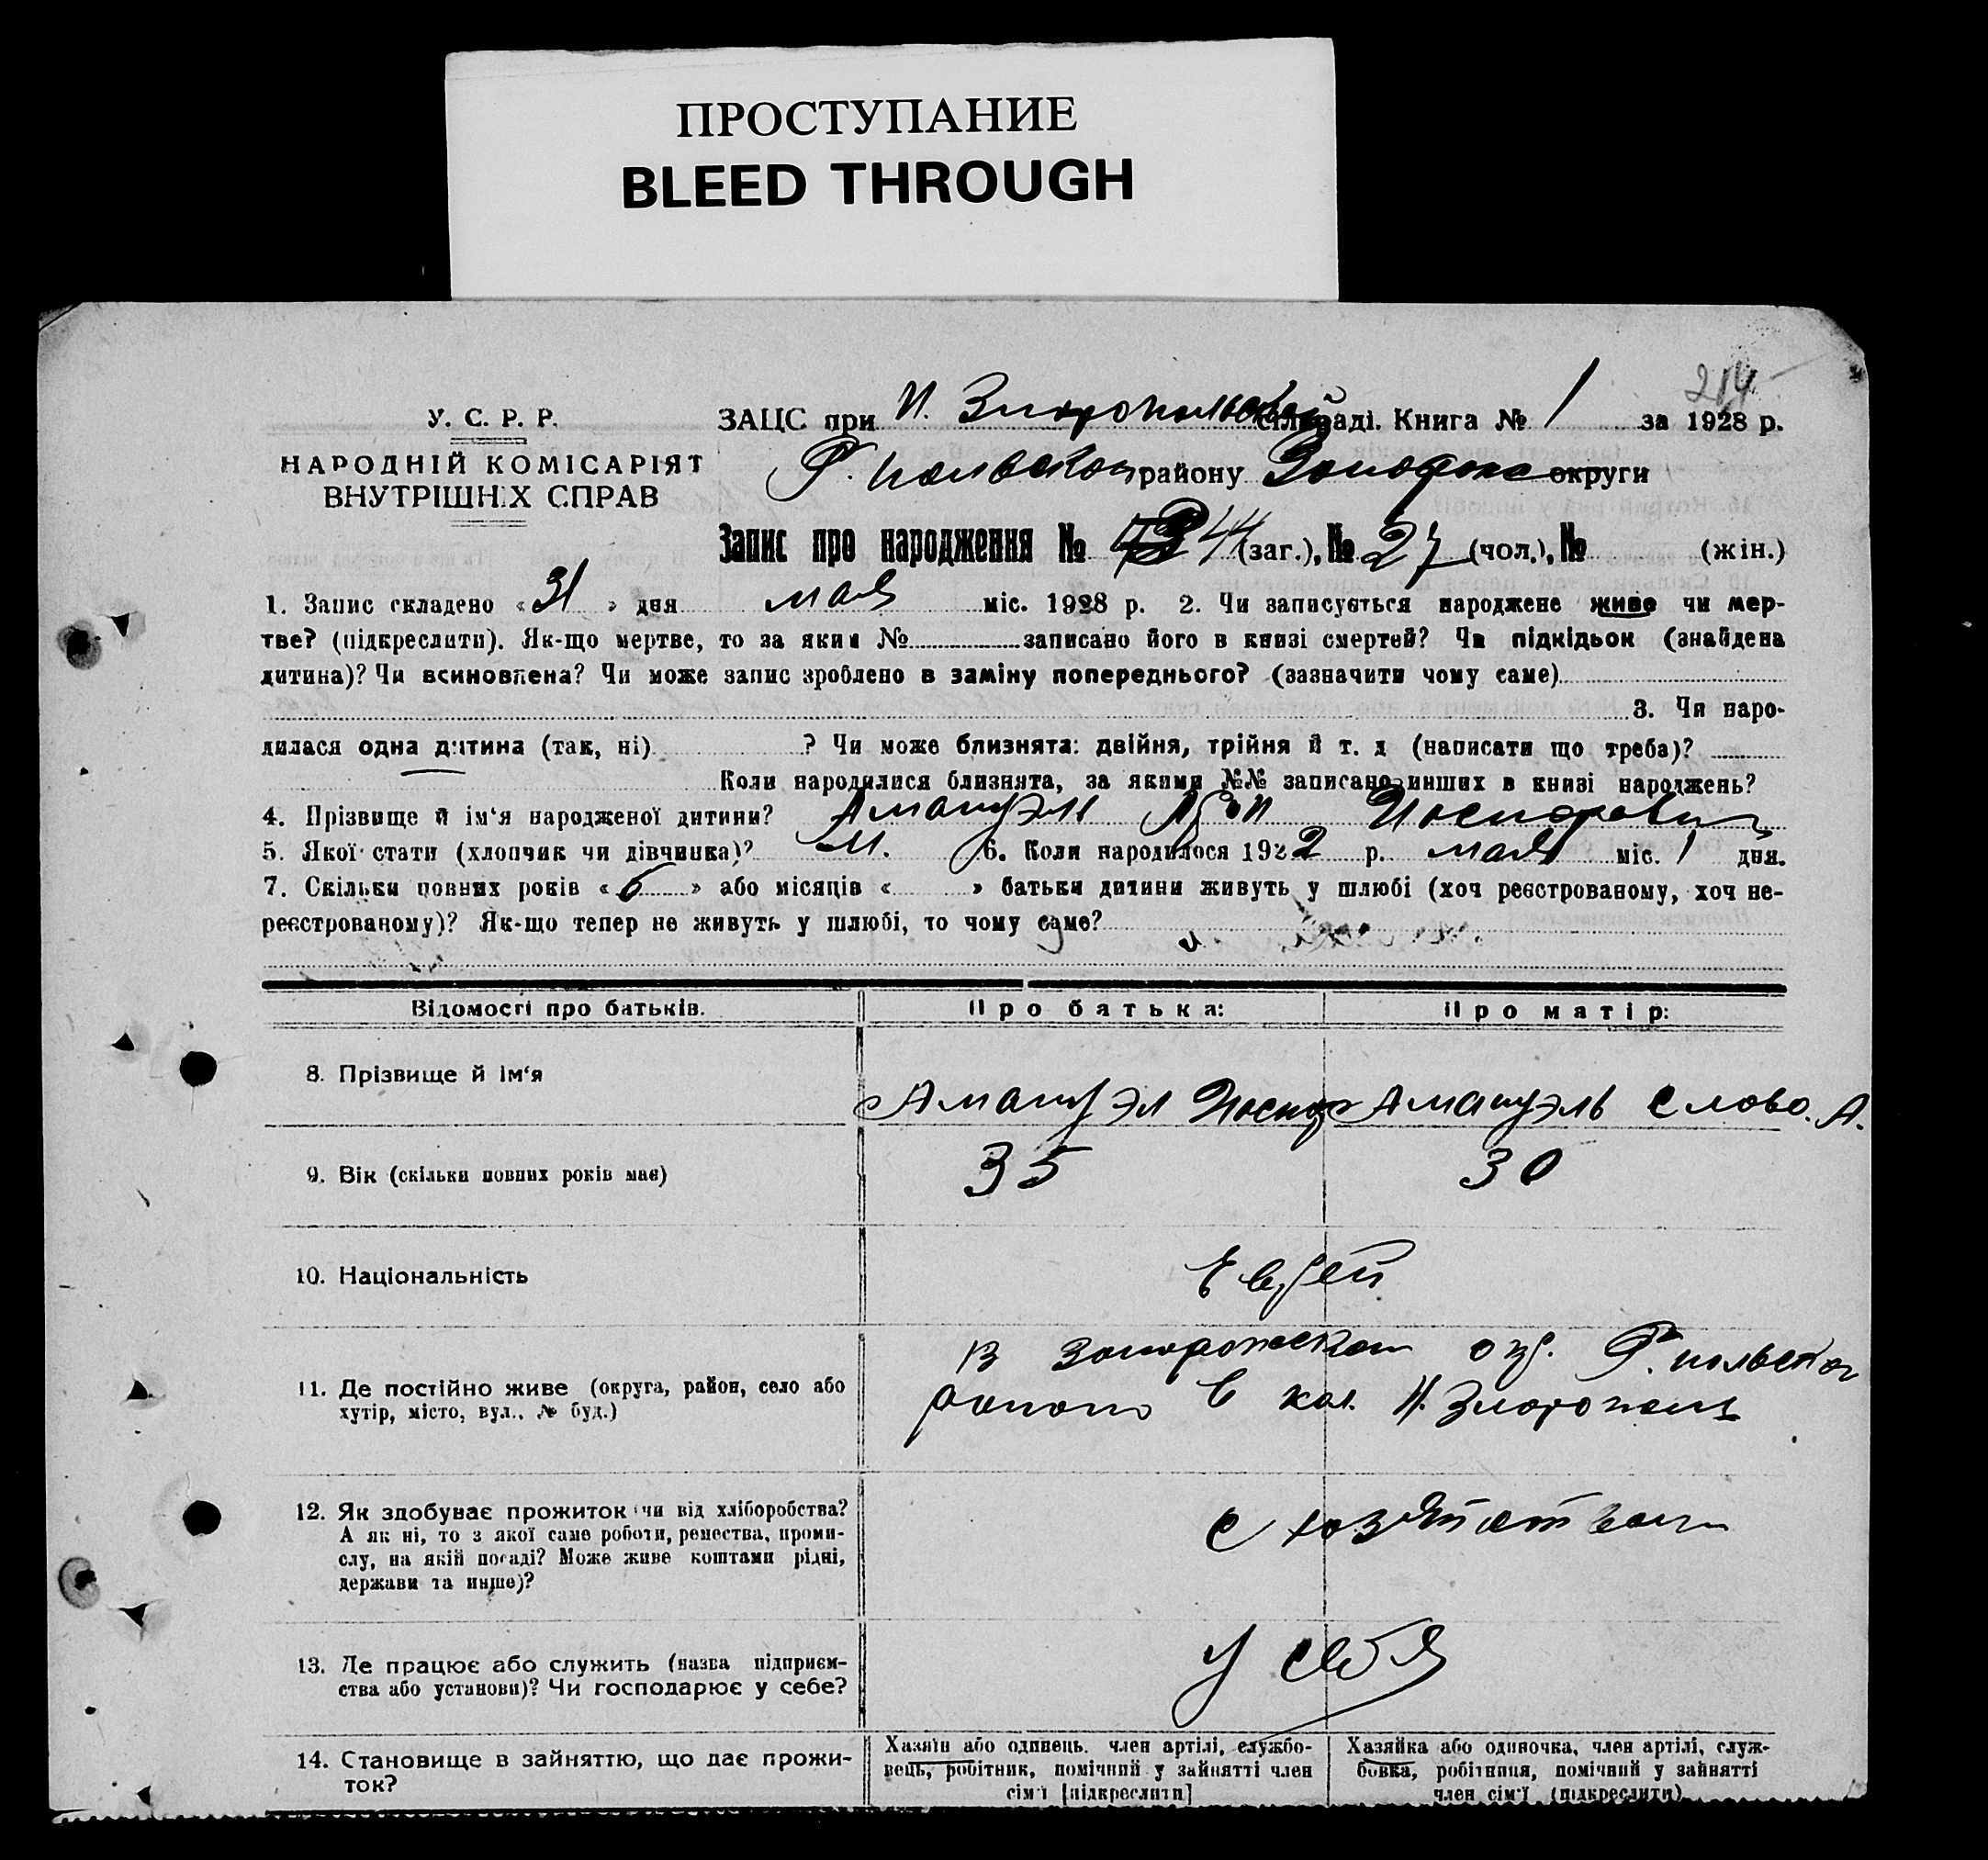 ПРОСТУПАНИЕ
BLEED THROUGH
214
У. С. Р. Р.
НАРОДНІЙ КОМІСАРІЯТ
ВНУТРІШНІХ СПРАВ
ЗАЦС при Н. Златопольской сільраді. Книга № 1 за 1928 р.
району округи
Запис про народження № 44 (заг.), № 27 (чол.), № (жін.)
1. Запис складено «31» дня мая міс. 1928 р. 2. Чи записується народжене живе чи мер-
тве? (підкреслити). Як-що мертве, то за яким № записано його в книзі смертей? Чи підкідьок (знайдена
дитина)? Чи всиновлена? Чи може запис зроблено в заміну попереднього? (зазначити чому саме)
3. Чи наро-
дилася одна дитина (так, ні) ? Чи може близнята: двійня, трійня й т. д (написати що треба)?
Коли народилися близнята, за якими №№ записано инших в книзі народжень?
4. Прізвище й ім‘я народженої дитини? Амануэль Иосифович
5. Якої стати (хлопчик чи дівчинка)? м. 6. Коли народилося 1922 р. мая міс. 1 дня.
7. Скільки повних років «6» або місяців « » батьки дитини живуть у шлюбі (хоч реєстрованому, хоч не-
реєстрованому)? Як-що тепер не живуть у шлюбі, то чому саме?
Відомості про батьків. Про батька: Про матір:
8. Прізвище й ім‘я Амануэл Иосиф Амануэль Слова. А.
9. Вік (скільки повних років має) 35 30
10. Національність Еврей
11. Де постійно живе (округа, район, село або
хутір, місто, вул., № буд.)
В Запорожском окр.
районе в кол. Н. Златополь
12. Як здобуває прожиток чи від хліборобства?
А як ні, то з якої саме роботи, ремества, проми-
слу, на якій посаді? Може живе коштами рідні,
держави та инше)?
С хозяйством
13. Де працює або служить (назва підприєм-
ства або установи)? Чи господарює у себе?
У себя
14. Становище в зайняттю, що дає прожи-
ток?
Хазяїн або одинець, член артілі, службо-
вець, робітник, помічний у зайнятті член
сім‘ї [підкреслити]
Хазяйка або одиночка, член артілі, служ-
бовка, робітниця, помічний у зайнятті
член сім‘ї (підкреслити)